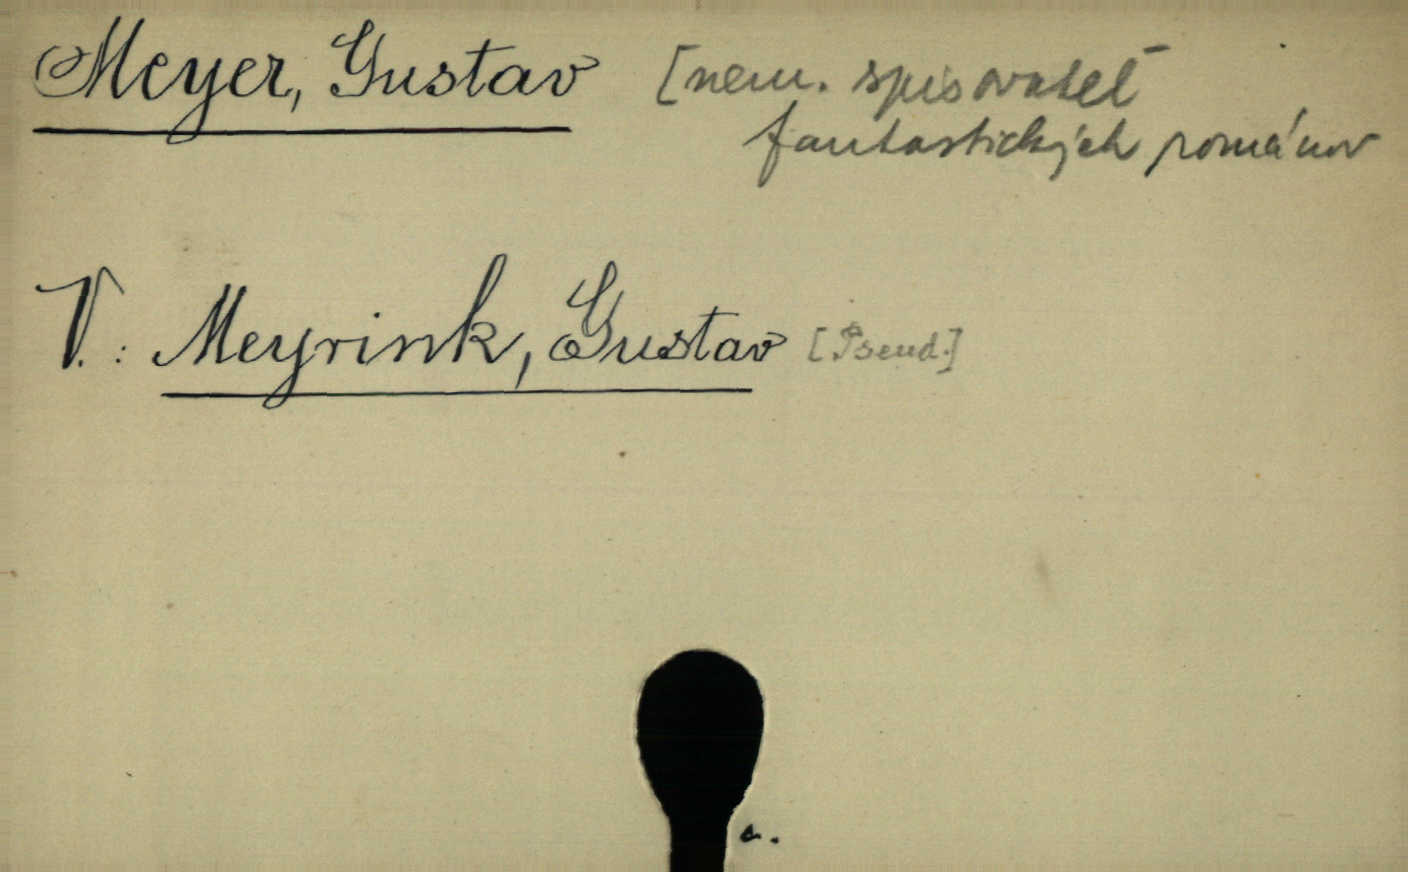 Meyer, Gustav [nem. spisovateľ
fantastických románov
V.: Meyrink, Gustav [Pseud.]